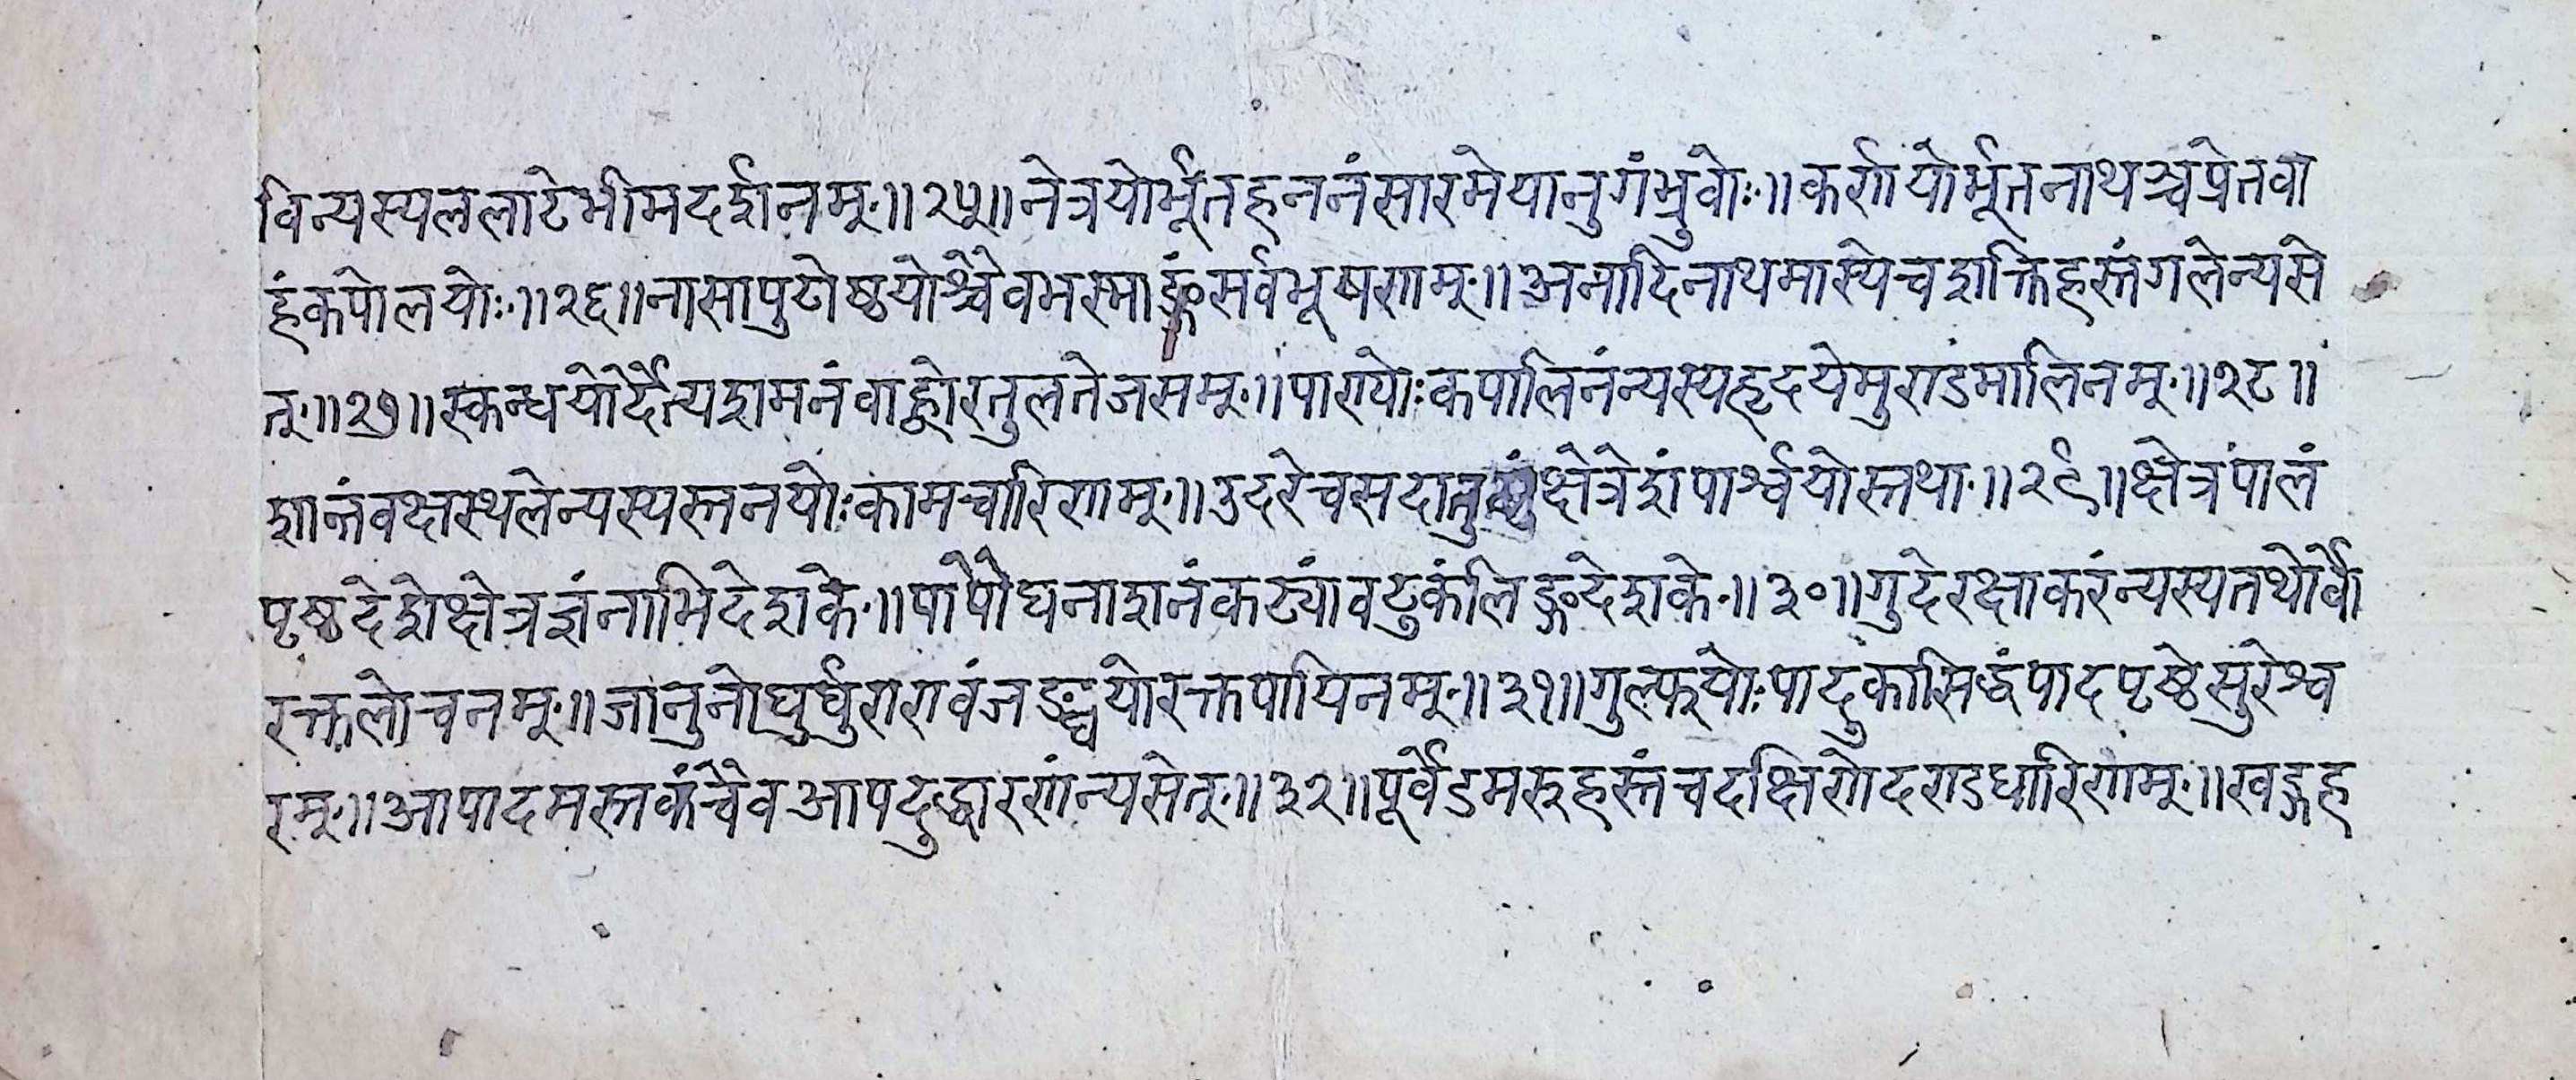 विन्यस्यललाटेभीमदर्शनम्॥२५॥नेत्रयोर्भूतहननंसारमेयानुगंभ्रुवोः॥कर्णयोर्भूतनाथञ्चप्रेतवा
हंकपोलयोः॥२६॥नासापुटोष्ठयोश्चैवभस्माङ्गंसर्वभूषणम्॥अनादिनाथमास्येचशक्तिहस्तंगलेन्यसे
त्॥२७॥स्कन्धयोर्दैत्यशमनंवाह्वोरतुलतेजसम्॥पाण्योःकपालिनंन्यस्यहृदयेमुण्डमालिनम्॥२८॥
शान्तंवक्षस्थलेन्यस्यस्तनयोःकामचारिणम्॥उदरेचसदातुष्टंक्षेत्रेशंपार्श्वयोस्तथा॥२९॥क्षेत्रपालं
पृष्ठदेशेक्षेत्रज्ञंनाभिदेशके॥पापौघनाशनंकट्यांवटुकंलिङ्गदेशके॥३०॥गुदेरक्षाकरंन्यस्यतथोर्वो
रक्तलोचनम्॥जानुनोघुर्घुरारावंजङ्घयोरक्तपायिनम्॥३१॥गुल्फयोःपादुकासिद्धंपादपृष्ठेसुरेश्व
रम्॥आपादमस्तकंचैवआपदुद्धारणंन्यसेत्॥३२॥पूर्वेडमरुहस्तंचदक्षिणेदण्डधारिणम्॥खड्गह